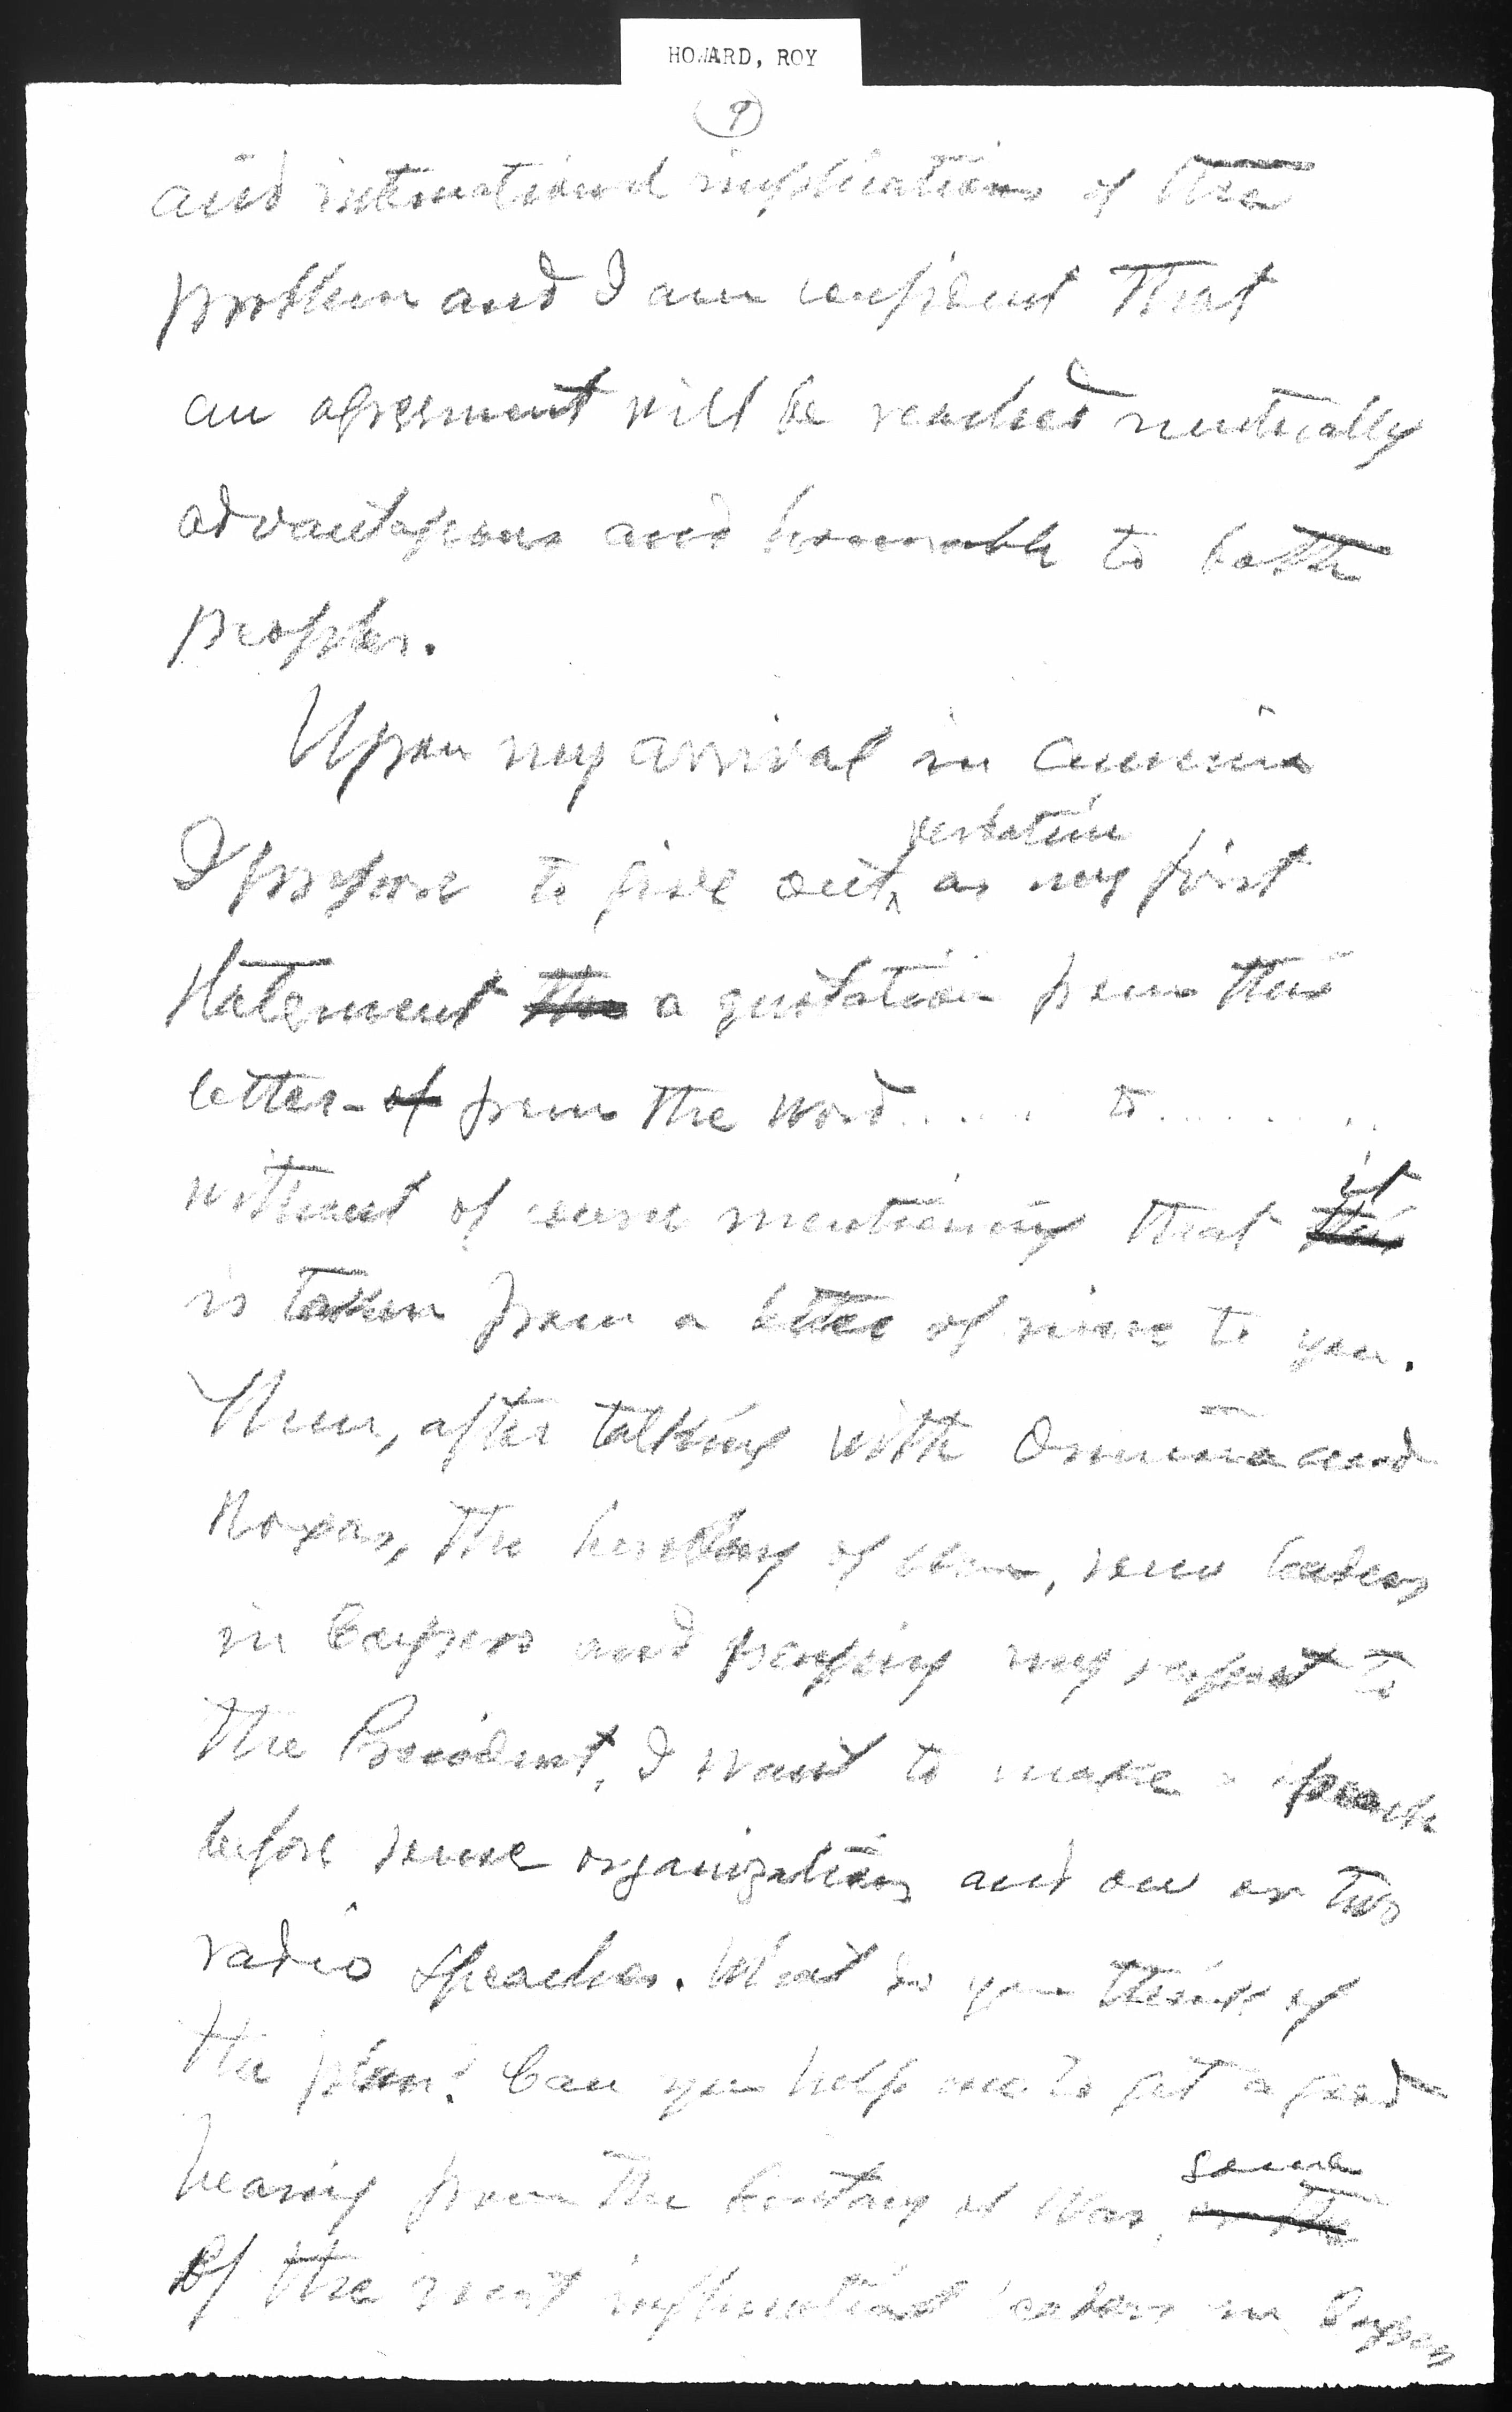 HOWARD, ROY
9
and international implications of the
problem and I am confident that
an agreement will be reached mutually
advantageous and honorable to both
peoples.
Upon my arrival in America
verbatim
I propose to give out ^ as my first
statement the a quotation from this
letter - of from the word ..... to ........
it
without of course mentioning that this
is taken from a letter of mine to you.
Then, after talking with Osmeña and
Roxas, the Secretary of War, some leaders
in Congress and paying my respect to
the President, I want to make a speech
before some organizations and one or two
radio speeches. What do you think of
the plan? Can you help me to get a good
some
hearing from the Secretary of War, or the
of the most influential leaders in Congress